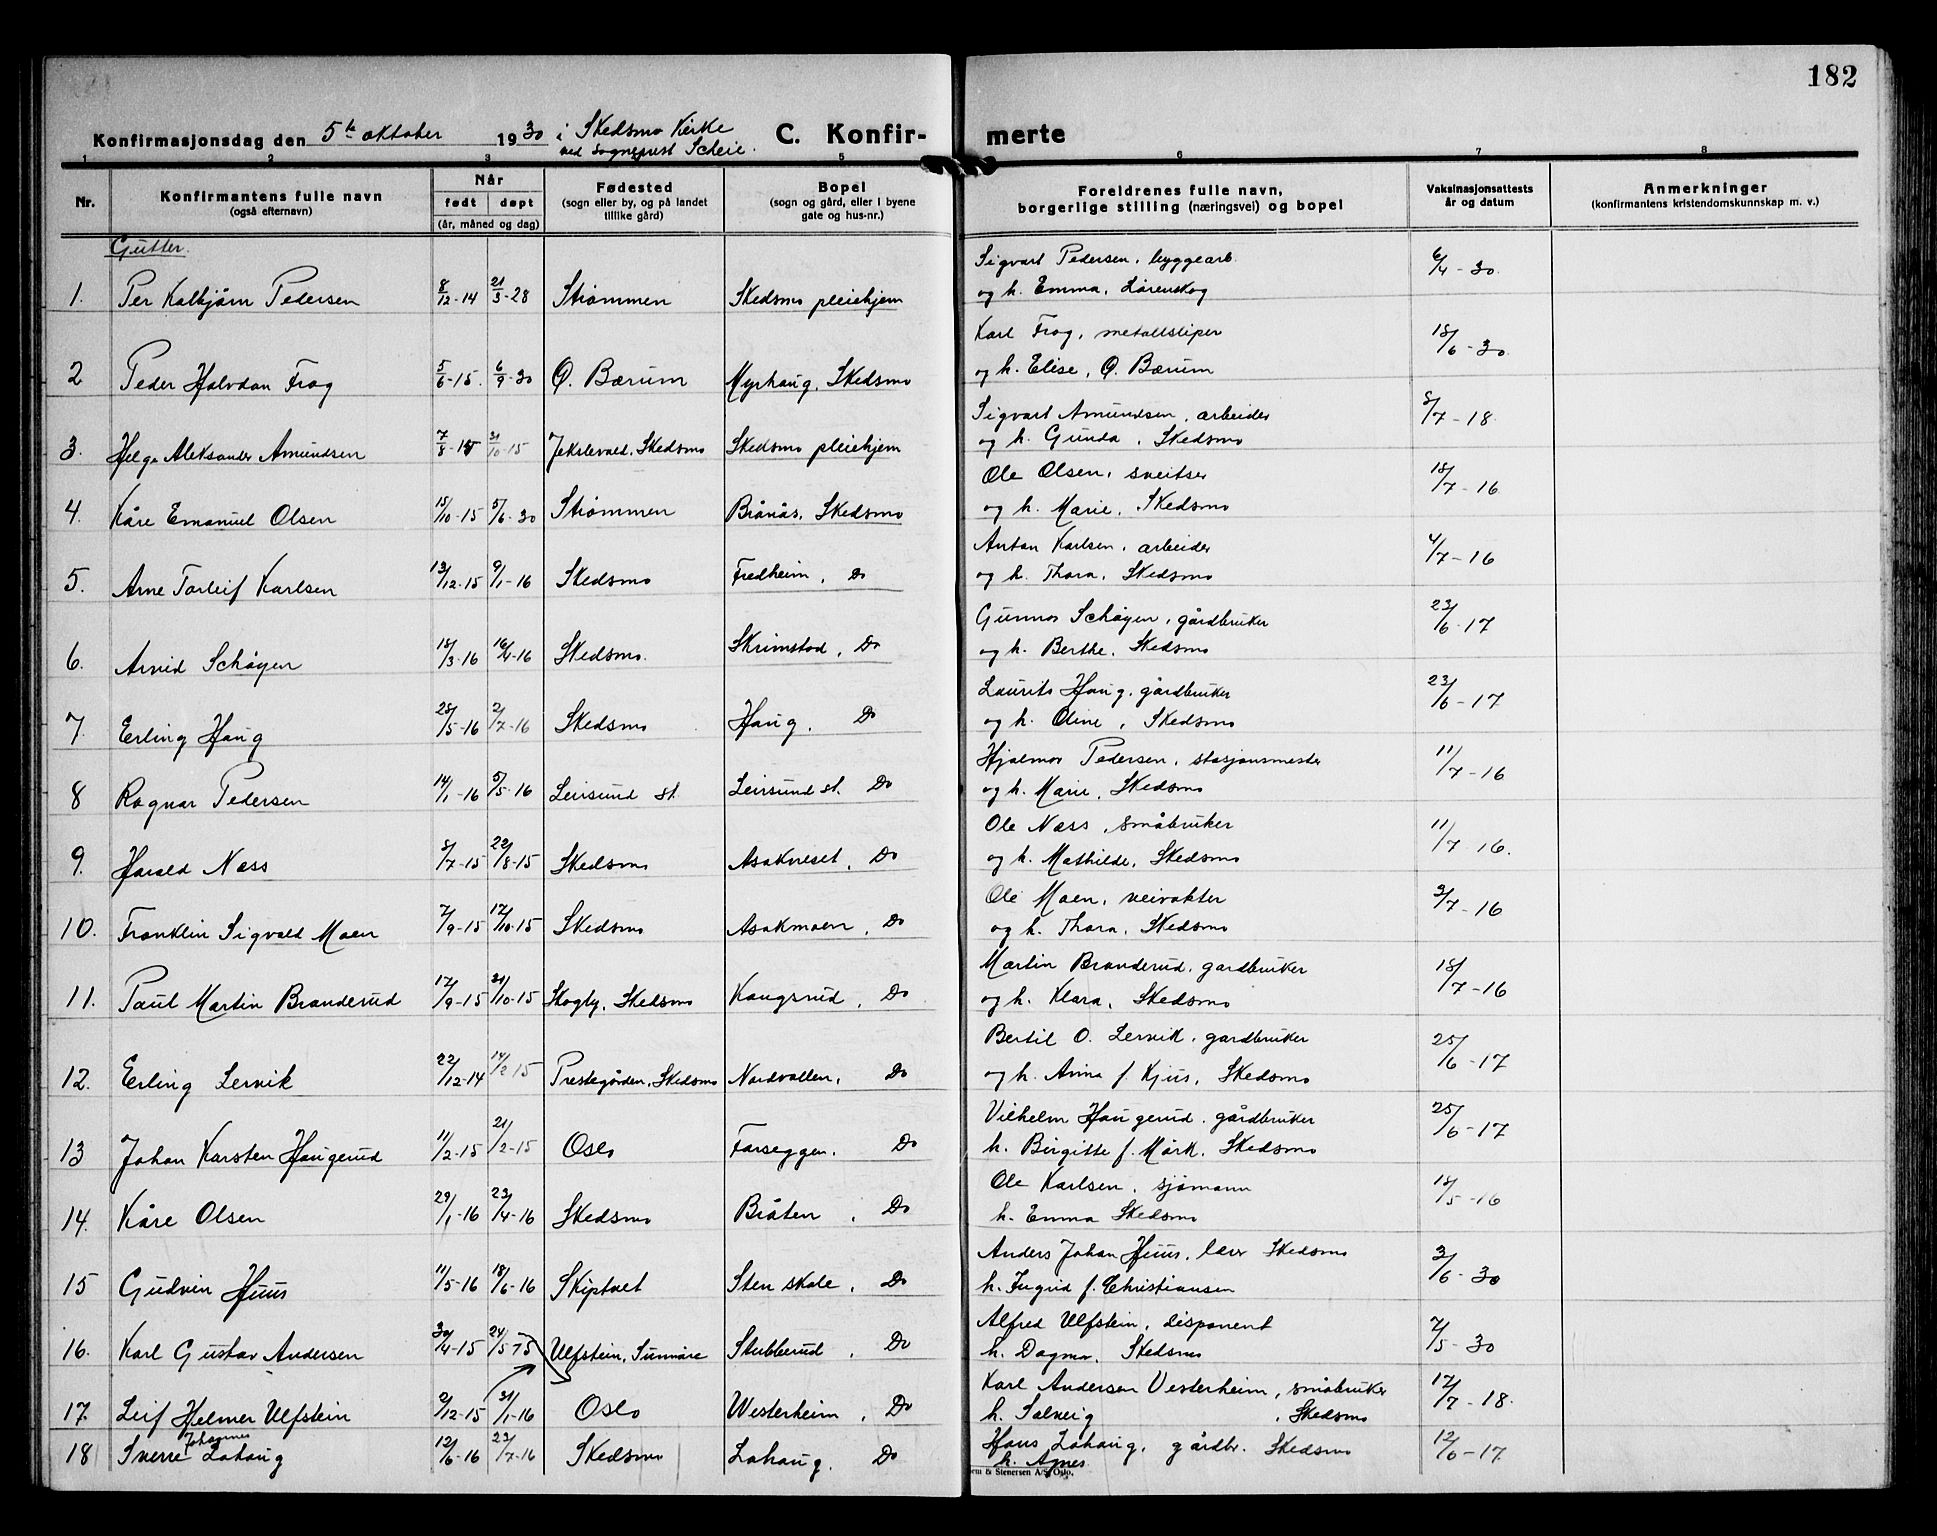 182
Konfirmasjonsdag den 5te oktober 1930 i Skedsmo Kirke
ved sogneprest Scheie.
C. Konfir- merte
1 2 3 5 6 7 8
Nr.
Konfirmantens fulle navn
(også efternavn)
Når
født døpt
(år, måned og dag)
Fødested
(sogn eller by, og på landet
tillike gård)
Bopel
(sogn og gård, eller i byene
gate og hus-nr.)
Foreldrenes fulle navn,
borgerlige stilling (næringsvei) og bopel
Vaksinasjonsattests
år og datum
Anmerkninger
(konfirmantens kristendomskunnskap m. v.)
Gutter.
Sigvart Pedersen, byggearb. 6/4-30.
1. Per Kolbjørn Pedersen 8/12-14 21/3-28 Strømmen Skedsmo pleiehjem og h. Emma, Lørenskog
Karl Frog, metallsliper 18/6-30
2 Peder Halvdan Frog 5/6-15. 6/9-30 Ø. Bærum Myrhaug, Skedsmo og h. Elise, Ø. Bærum
Sigvart Amundsen, arbeider 8/7-18.
3. Helge Aleksander Amundsen 7/8-15 31/10-15 Jekslevold, Skedsmo Skedsmo pleiehjem og h. Gunda, Skedsmo
Ole Olsen, sveitser 18/7-16
4. Kåre Emanuel Olsen 15/10-15 5/6-30 Strømmen Brånås, Skedsmo og h. Marie, Skedsmo
Anton Karlsen, arbeider 4/7-16
5. Arne Torleif Karlsen 13/12-15 9/1-16 Skedsmo Fredheim, Do og h. Thora, Skedsmo
Gunnar Schøyen, gårdbruker 23/6-17
6. Arvid Schøyen 18/3-16 16/4-16 Skedsmo. Skrimstad, Do og h. Berthe, Skedsmo
Laurits Haug, gårdbruker 23/6-17
7. Erling Haug 28/5-16 2/7-16 Skedsmo Haug, Do og h. Oline, Skedsmo
Hjalmar Pedersen, stasjonsmester 11/7-16
8 Ragnar Pedersen 14/1-16 5/5-16 Leirsund st. Leirsund st. Do og h. Marie, Skedsmo
Ole Næss, småbruker 11/7-16.
9. Harald Næss 8/7-15 22/8-15 Skedsmo Asakneset, Do og h. Mathilde, Skedsmo
Ole Moen, veivokter 3/7-16
10. Franklin Sigvald Moen 7/9-15 17/10-15 Skedsmo Asakmoen, Do og h. Thora, Skedsmo
Martin Branderud, gardbruker 18/7-16
11. Paul Martin Branderud 17/9-15 31/10-15 Skogly, Skedsmo Kongsrud, Do og h. Klara, Skedsmo
Bertil O. Lervik, gardbruker 25/6-17
12. Erling Lervik 22/12-14 14/2-15 Prestegården, Skedsmo Nordvollen, Do og h. Anna f. Kjus, Skedsmo
Vilhelm Haugerud, gårdbruker 25/6-17
13 Johan Karsten Haugerud 11/2-15 21/2-15 Oslo Farseggen, Do h. Birgitte f. Mørk, Skedsmo
Ole Karlsen, sjømann 18/5-16
14. Kåre Olsen 29/1-16 23/4-16 Skedsmo Bråten, Do h. Emma Skedsmo
Anders Johan Huus, lærer Skedsmo 3/6-30
15 Gudvin Huus 11/5-16 18/6-16 Skiptvet Sten skole, Do h. Ingrid f. Christiansen
Alfred Ulfstein, disponent 7/5-30
16. Karl Gustav Andersen 30/4-15 24/5-15 Ulfstein, Sunmøre Stubberud, Do h. Dagmar, Skedsmo
Karl Andersen Vesterheim, småbruker 17/7-18.
17. Leif Helmer Ulfstein 2/12-15 31/1-16 Oslo Westerheim, Do h. Solveig, Skedsmo
18 Sverre Johannes Lohaug 12/6-16 23/7-16 Skedsmo Lohaug. Do Hans Lohaug, gårdbr. Skedsmo 12/6-17.
h. Agnes
& Stenersen A/S Oslo.